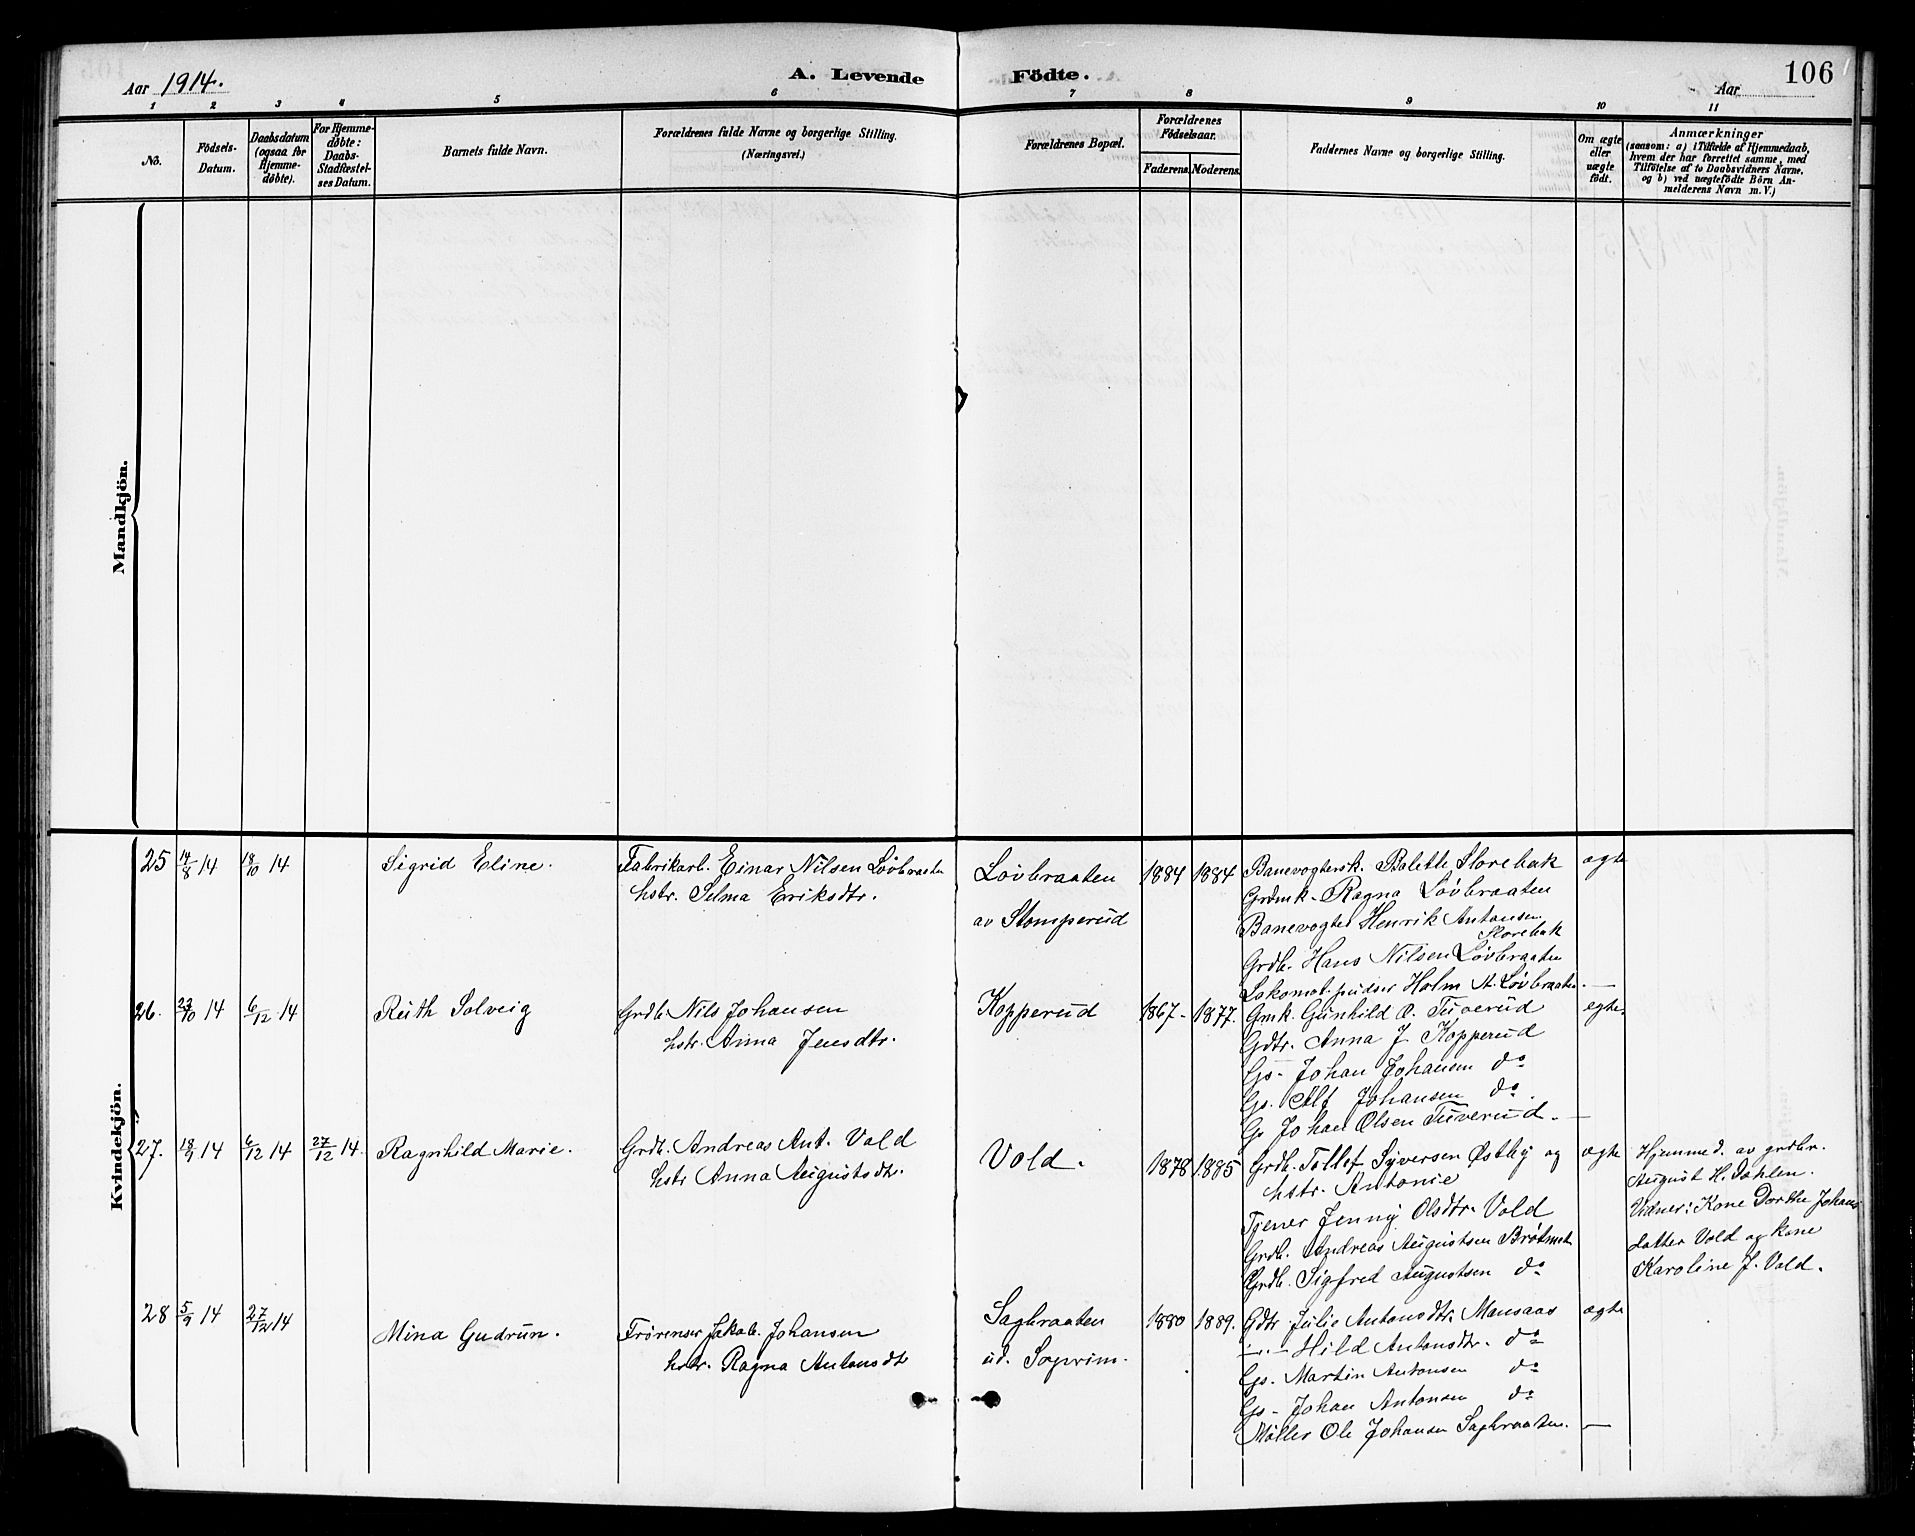 106
Aar 1914.
A. Levende Födte.
Aar
1 2 3 4 5 6 7 8 9 10 11
No.
Födsels-Datum.
Daabsdatum (ogsaa for Hjemme-døbte).
For Hjemme-døbte: Daabs-Stadfæstel-ses Datum.
Barnets fulde Navn.
Forældrenes fulde Navne og borgerlige Stilling.
(Næringsvei.)
Forældrenes Bopæl.
Forældrenes Födselsaar.
Faderens. Moderens.
Faddernes Navne og borgerlige Stilling.
Om ægte eller uægte födt.
Anmærkninger
(saasom: a) i Tilfælde af Hjemmedaab,
hvem der har forrettet samme, med
Tilföielse af to Daabsvidners Navne,
og b) ved uægtefödte Börn An-
melderens Navn m. V.)
Mandkjön.
Kvindekjön.
25 14/8 14 18/10 14 Sigrid Eline. Fabrikarb. Einar Nilsen Løvbraaten Løvbraaten 1884 1884 Banevogtersk. Balette Storebak ægte
hstr. Selma Eriksdtr. av Stomperud Grdmk. Ragna Løvbraaten
Banevogter Henrik Antonsen
Storebak
Grdb. Hans Nilsen Løvbraaten
Lokomot. pudser Holm N. Løvbraaten. —
26. 23/10 14 6/12 14 Ruth Solveig Grdb. Nils Johansen Kopperud 1867 - 1877. Gmk. Gunhild O. Tuverud egte.
hstr. Anna Jensdtr. Gdtr. Anna J. Kopperud
Gs- Johan Johansen do
Gs. Alf Johansen do.
Gs Johan Olsen Tuverud. —
27. 18/9 14 6/12 14 27/12 14. Ragnhild Marie. Grdb. Andreas Ant. Vold Vold. 1878 1885 Grdb. Tollef Syversen Østby og ægte Hjemmed. av grdbr.
hstr Anna Augustsdtr. hstr. Antonie August H. Dahlen.
Tjener Jenny Olsdtr. Vold Vidner: Kone Dorthe Johans
Grdb. Andreas Augustsen datter Vold og kone
Grdb. Sigfred Augustsen do Karoline J. Vold.
28 5/9 14 27/12 14 Mina Gudrun. Jakob. Johansen Sagbraaten 1880 1889. Gdtr Julie Antonsdtr. Mansaas ægte
hstr. Ragna Antonsdtr ud. —..— Hild Antonsdtr. do
Gs. Martin Antonsen do
Gs - Johan Antonsen do
Møller Ole Johansen Sagbraaten. —